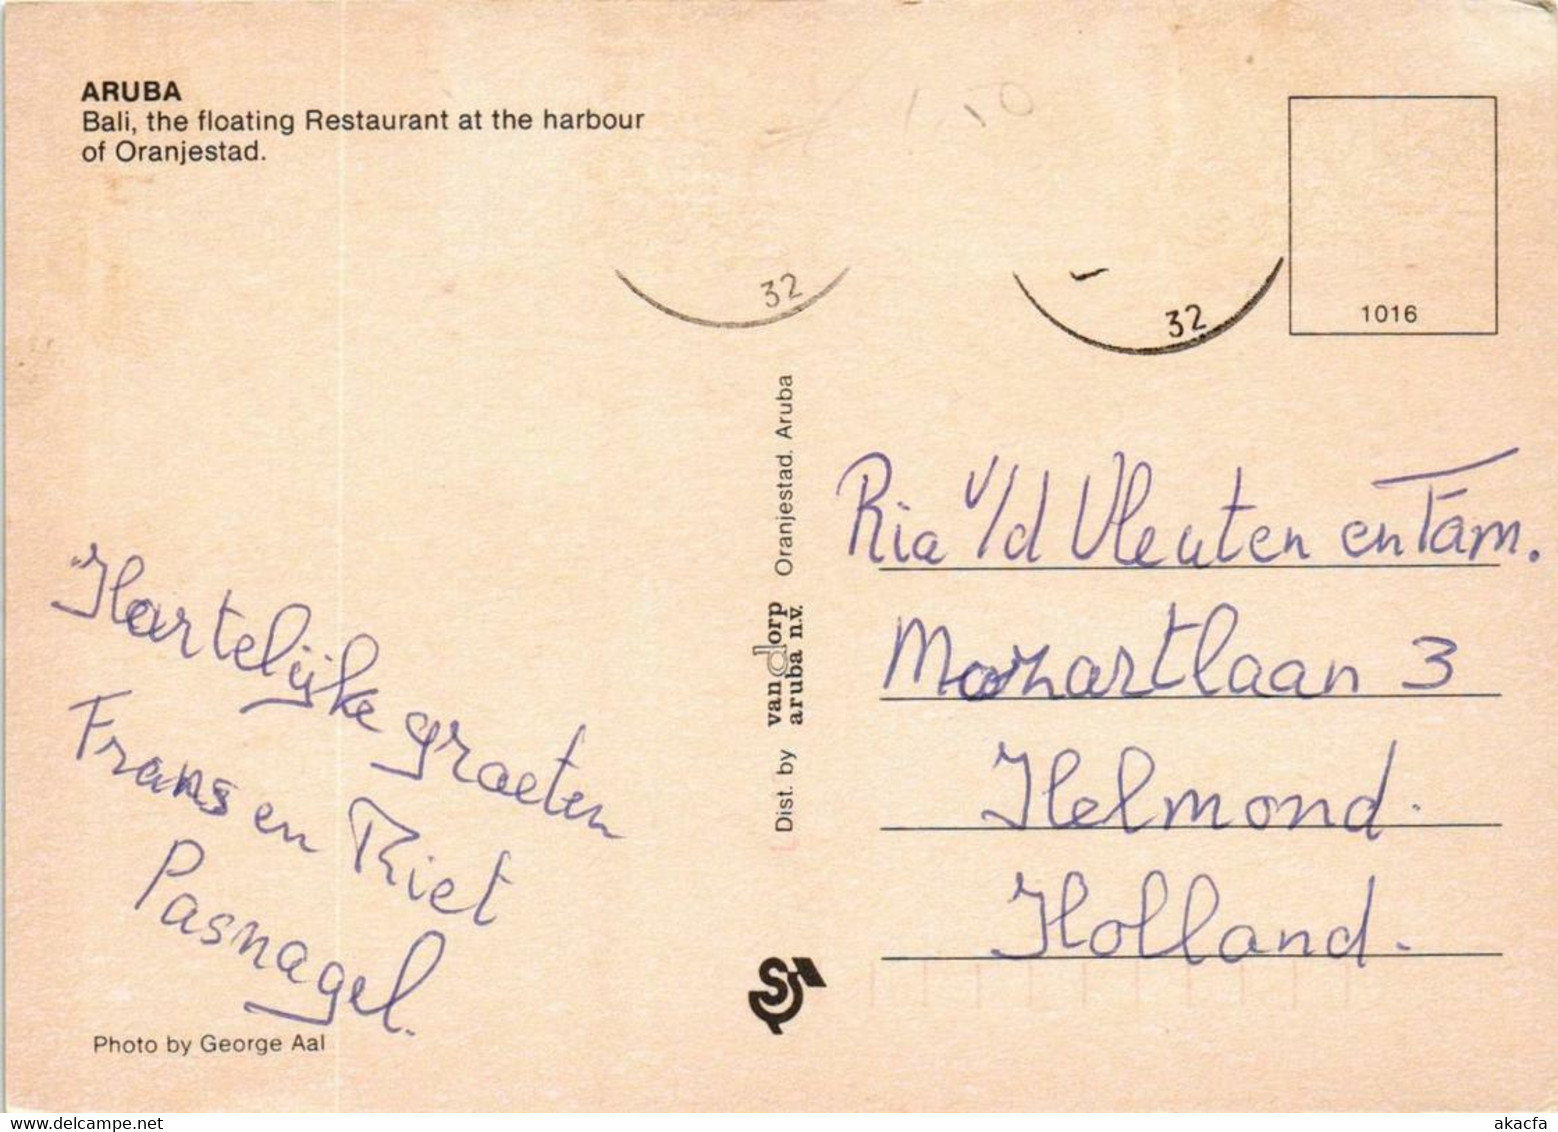 ARUBA
Bali, the floating Restaurant at the harbour
of Oranjestad.
32
32
1016
Hartelijke groeten
Frans en Riet
Pasnagel.
Photo by George Aal
Dist. by van dorp aruba n.v. Oranjestad. Aruba
Ria v/d Vleuten en Fam.
Mozartlaan 3
Helmond.
Holland.
www.delcampe.net
akacfa